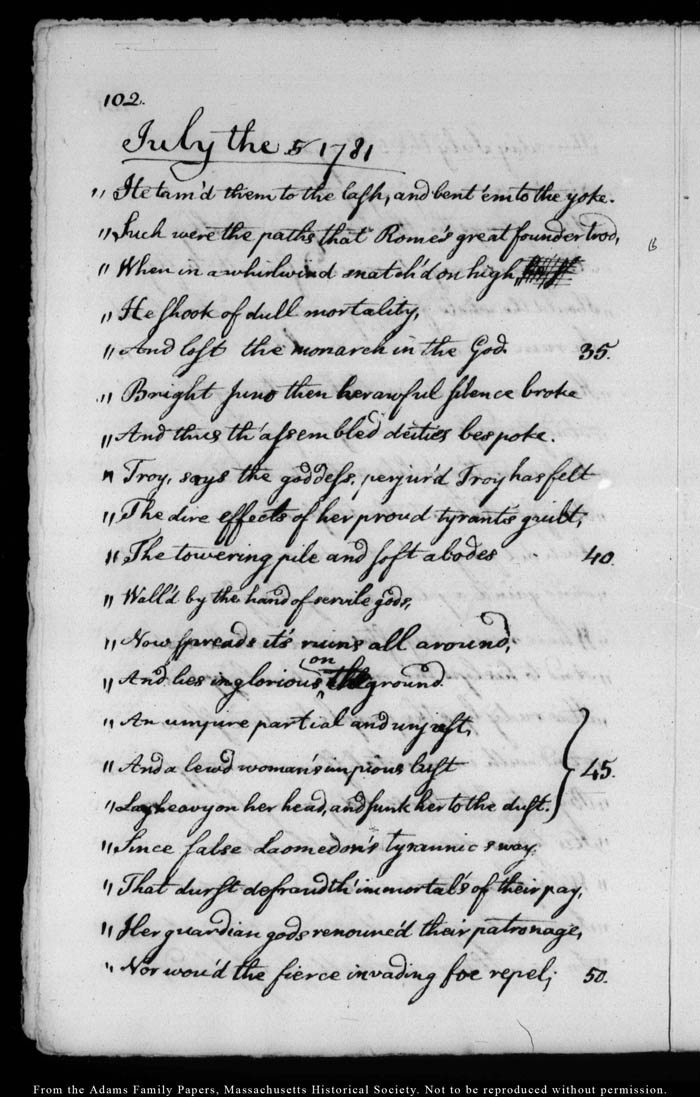 102.
July the 5 1781
" He tam'd them to the lash, and bent 'em to the yoke.
" Such were the paths that Rome's great founder trod,
" When in a whirlwind snatch'd on high
" He shook of dull mortality,
" And lost the monarch in the God. 35.
" Bright Juno then her awful silence broke
" And thus th' assembled deities bespoke.
" Troy, says the goddess, perjur'd Troy has felt
" The dire effects of her proud tyrant's guilt;
" The towering pile and soft abodes 40.
" Wall'd by the hand of servile gods,
" Now spreads it's ruins all around,
" And lies inglorious on the ground.
" An umpire partial and unjust,
" And a lewd woman's impious lust 45.
" Lay heavy on her head, and sunk her to the dust.
" Since false Laomedon's tyrannic sway,
" That durst defraud th' immortal's of their pay,
" Her guardian gods renounc'd their patronage,
" Nor wou'd the fierce invading foe repel; 50.
From the Adams Family Papers, Massachusetts Historical Society. Not to be reproduced without permission.